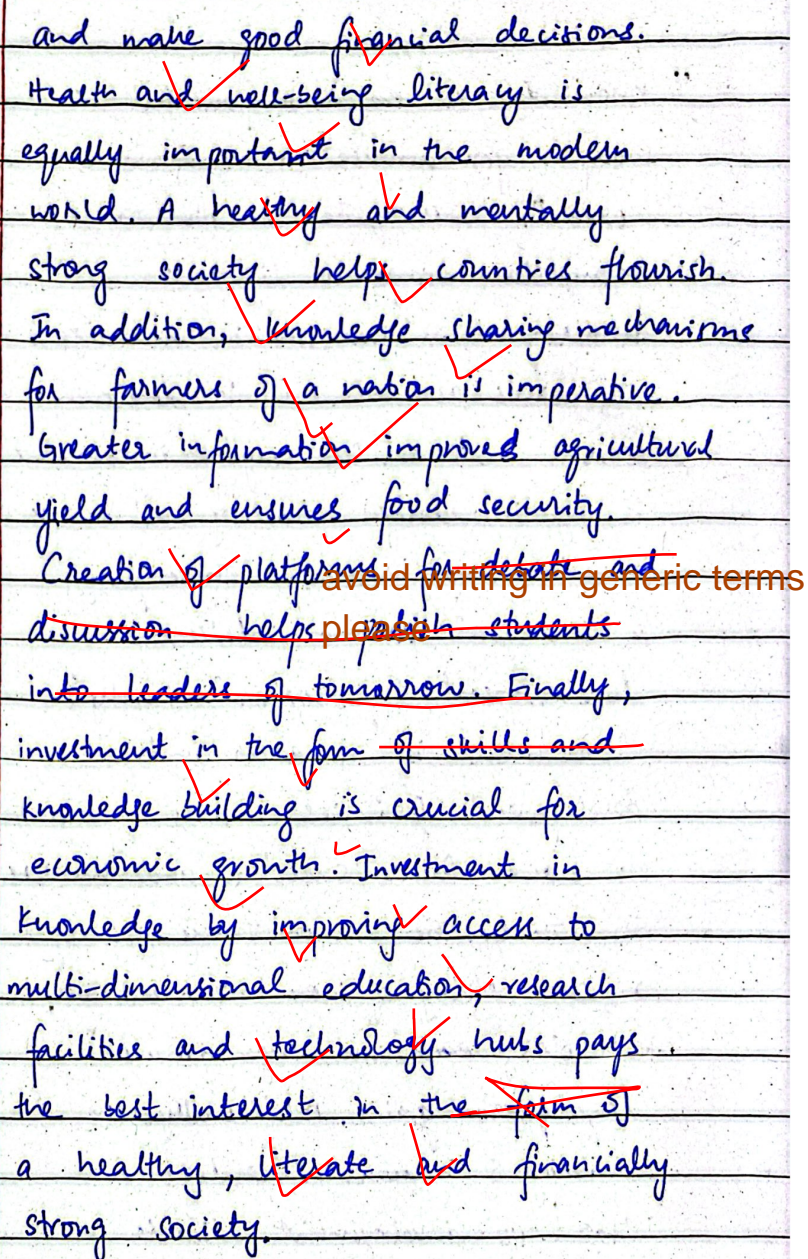 and make good financial decisions.
Health and well-being literacy is
equally important in the modern
world. A healthy and mentally
strong society helps countries flourish.
In addition, knowledge sharing mechanisms
for farmers of a nation is imperative.
Greater information improves agricultural
yield and ensures food security.
Creation of platforms for debate and
avoid writing in generic terms
discussion helps polish students
please
into leaders of tomorrow. Finally,
investment in the form of skills and
knowledge building is crucial for
economic growth. Investment in
knowledge by improving access to
multi-dimensional education, research
facilities and technology hubs pays
the best interest in the form of
a healthy, literate and financially
strong society.